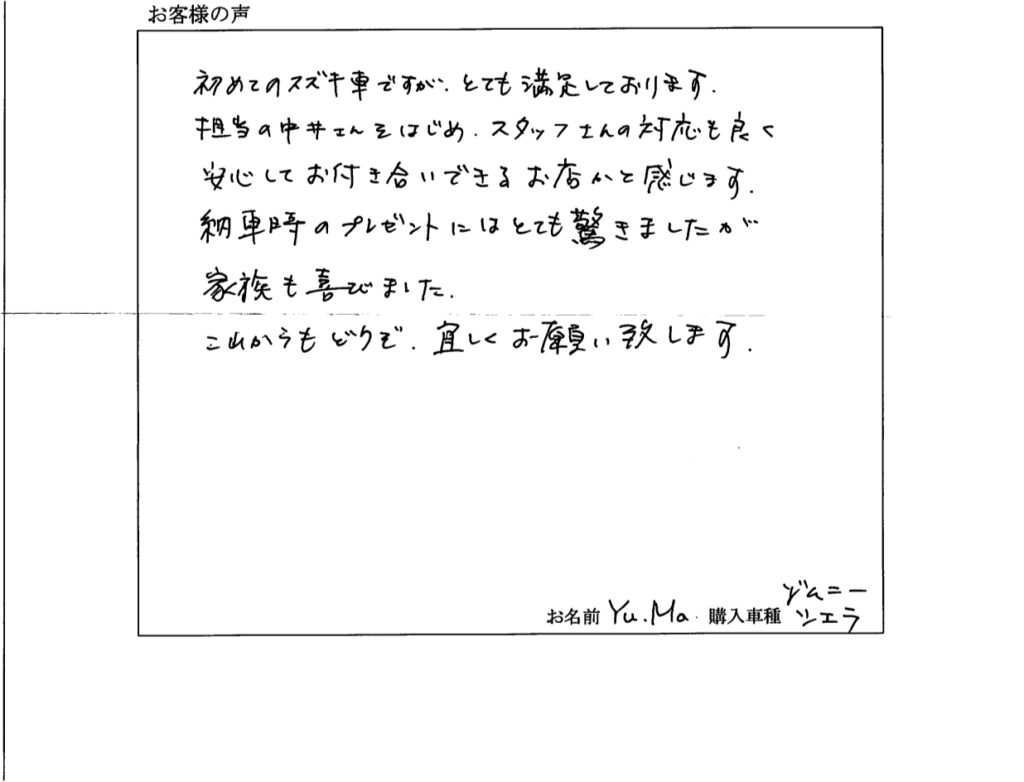 お客様の声
初めてのスズキ車ですが、とても満足しております.
担当の中井さんをはじめ、スタッフさんの対応も良く
安心してお付き合いできるお店かと感じます.
納車時のプレゼントにはとても驚きましたが
家族も喜びました.
これからもどうぞ、宜しくお願い致します.
ジムニー
お名前 Yu.Ma. 購入車種 シエラ